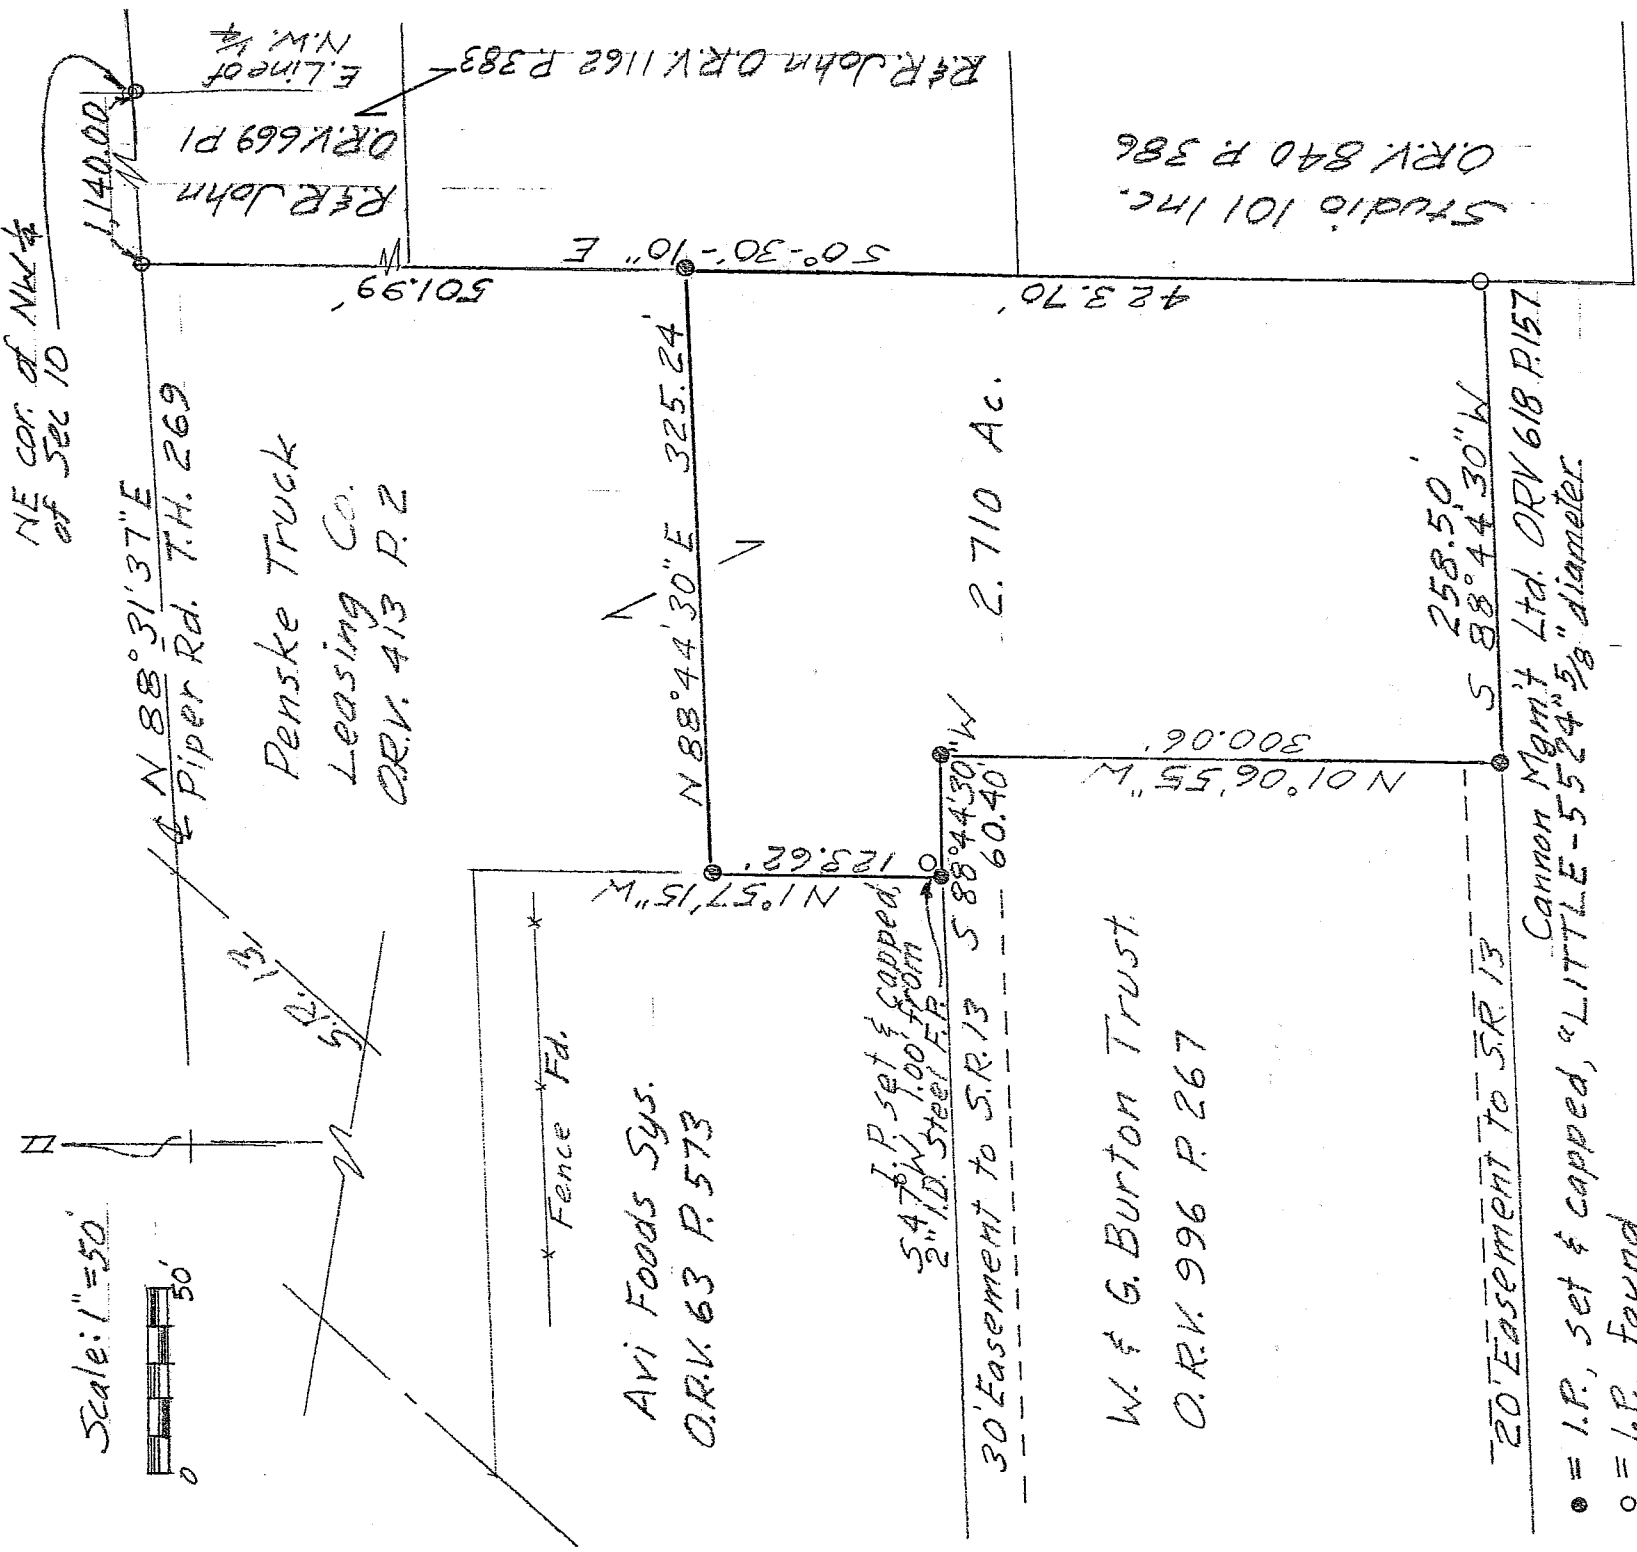 NE cor. of NW ¼
of Sec 10
1,140.00
E. Line of
N.W. ¼
R&R. John
O.R.V. 669 P1
R&R. John O.R.V. 1162 P. 383
Studio 101 Inc.
O.R.V. 840 P. 386
N 88° 31' 37" E
℄ Piper Rd. T.H. 269
501.99'
S 0°-30'-10" E
423.70'
Penske Truck
Leasing Co.
O.R.V. 413 P. 2
N 88° 44' 30" E 325.24'
2.710 Ac.
258.50'
S 88° 44' 30" W
Cannon Mgm't Ltd. ORV 618 P.157
N 01° 06' 55" W
300.06'
S 88° 44' 30" W
60.40'
N 1° 57' 15" W
123.62'
I.P. set & capped,
S 47° W, 1.00' from
2" I.D. Steel F.P.
S.R. 13
Scale: 1" = 50'
0 50'
Fence Fd.
Avi Foods Sys.
O.R.V. 63 P. 573
30' Easement to S.R. 13
W. & G. Burton Trust
O.R.V. 996 P. 267
20' Easement to S.R. 13
● = I.P., set & capped, "LITTLE-5524" 5/8" diameter.
○ = I.P. found